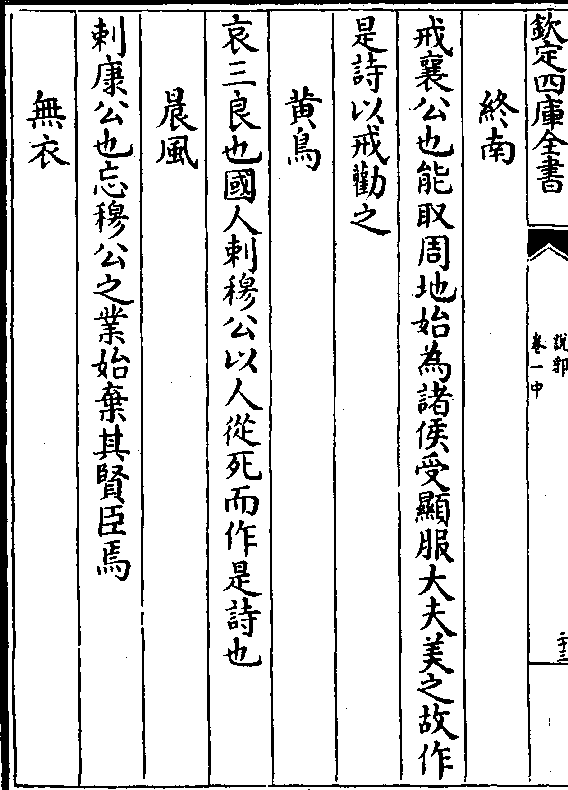 欽定四庫全書
說郛
卷一中
二十三
終南
戒襄公也能取周地始為諸侯受顯服大夫美之故作
是詩以戒勸之
黄鳥
哀三良也國人刺穆公以人從死而作是詩也
晨風
刺康公也忘穆公之業始棄其賢臣焉
無衣